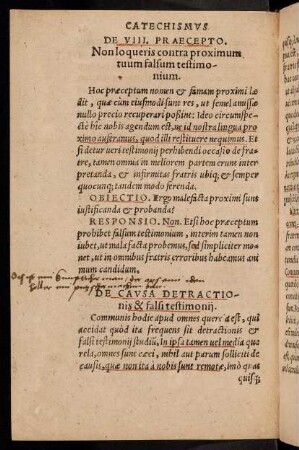 CATECHISMVS
DE VIII. PRAECEPTO.
Non loqueris contra proximum
tuum falsum testimo-
nium.
Hoc præceptum nomen & famam proximi læ-
dit, quæ cùm eiusmodi sunt res, ut semel amissæ
nullo precio recuperari possint: Ideo circumspe-
ctè hîc uobis agendum est, ne id nostra lingua pro-
ximo auferamus, quod illi restituere nequimus. Et
si detur ueri testimonij perhibendi occasio de fra-
tre, tamen omnia in meliorem partem erunt inter-
pretanda, & infirmitas fratris ubiq; & semper
quocunq; tandem modo ferenda.
OBIECTIO. Ergo malefacta proximi sunt
iustificanda & probanda?
RESPONSIO. Non. Etsi hoc præceptum
prohibet falsum testimonium, interim tamen non
iubet, ut mala facta probemus, sed simpliciter mo-
net, ut in omnibus fratris erroribus habeamus ani
mum candidum.
DE CAVSA DETRACTIO-
nis & falsi testimonij.
Communis hodie apud omnes querela est, quî
accidat quòd ita frequens sit detractionis &
falsi testimonij studiũ, In ipsa tamen uel media que
rela, omnes sunt cæci, nihil aut parum solliciti de
causis, quæ non ita à nobis sunt remotæ, imò quas